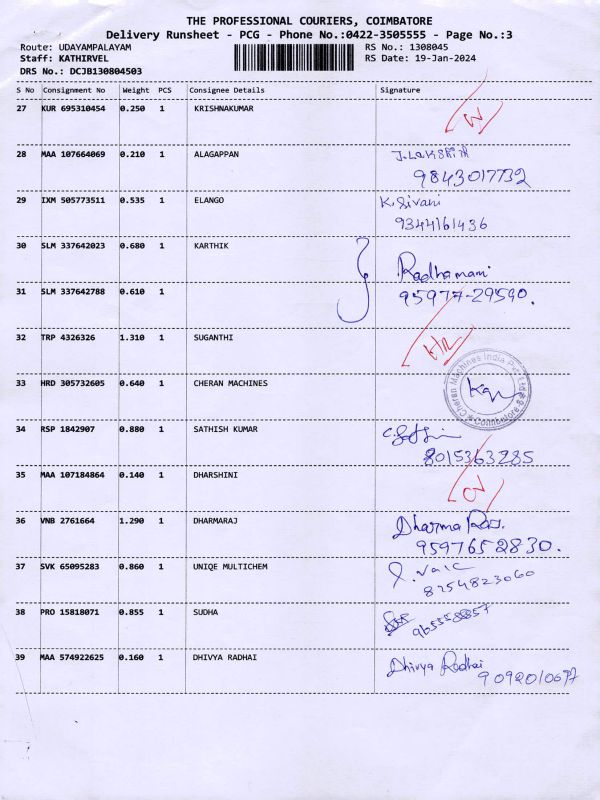 THE PROFESSIONAL COURIERS, COIMBATORE
Delivery Runsheet - PCG - Phone No.:0422-3505555 - Page No.:3
Route: UDAYAMPALAYAM RS No.: 1308045
Staff: KATHIRVEL RS Date: 19-Jan-2024
DRS No.: DCJB130804503
S No Consignment No Weight PCS Consignee Details Signature
27 KUR 695310454 0.250 1 KRISHNAKUMAR
28 MAA 107664069 0.210 1 ALAGAPPAN
9843017732
29 IXM 505773511 0.535 1 ELANGO K. Sivani
9344161436
30 SLM 337642023 0.680 1 KARTHIK Radhamani
31 SLM 337642788 0.610 1 95977-29590.
32 TRP 4326326 1.310 1 SUGANTHI
33 HRD 305732605 0.640 1 CHERAN MACHINES
Cheran Machines India Pvt Ltd Coimbatore
34 RSP 1842907 0.880 1 SATHISH KUMAR
8015363285
35 MAA 107184864 0.140 1 DHARSHINI
36 VNB 2761664 1.290 1 DHARMARAJ Dharma Raj.
9597652830.
37 SVK 65095283 0.860 1 UNIQE MULTICHEM
8254823060
38 PRO 15818071 0.855 1 SUDHA
39 MAA 574922625 0.160 1 DHIVYA RADHAI Dhivya Radhai